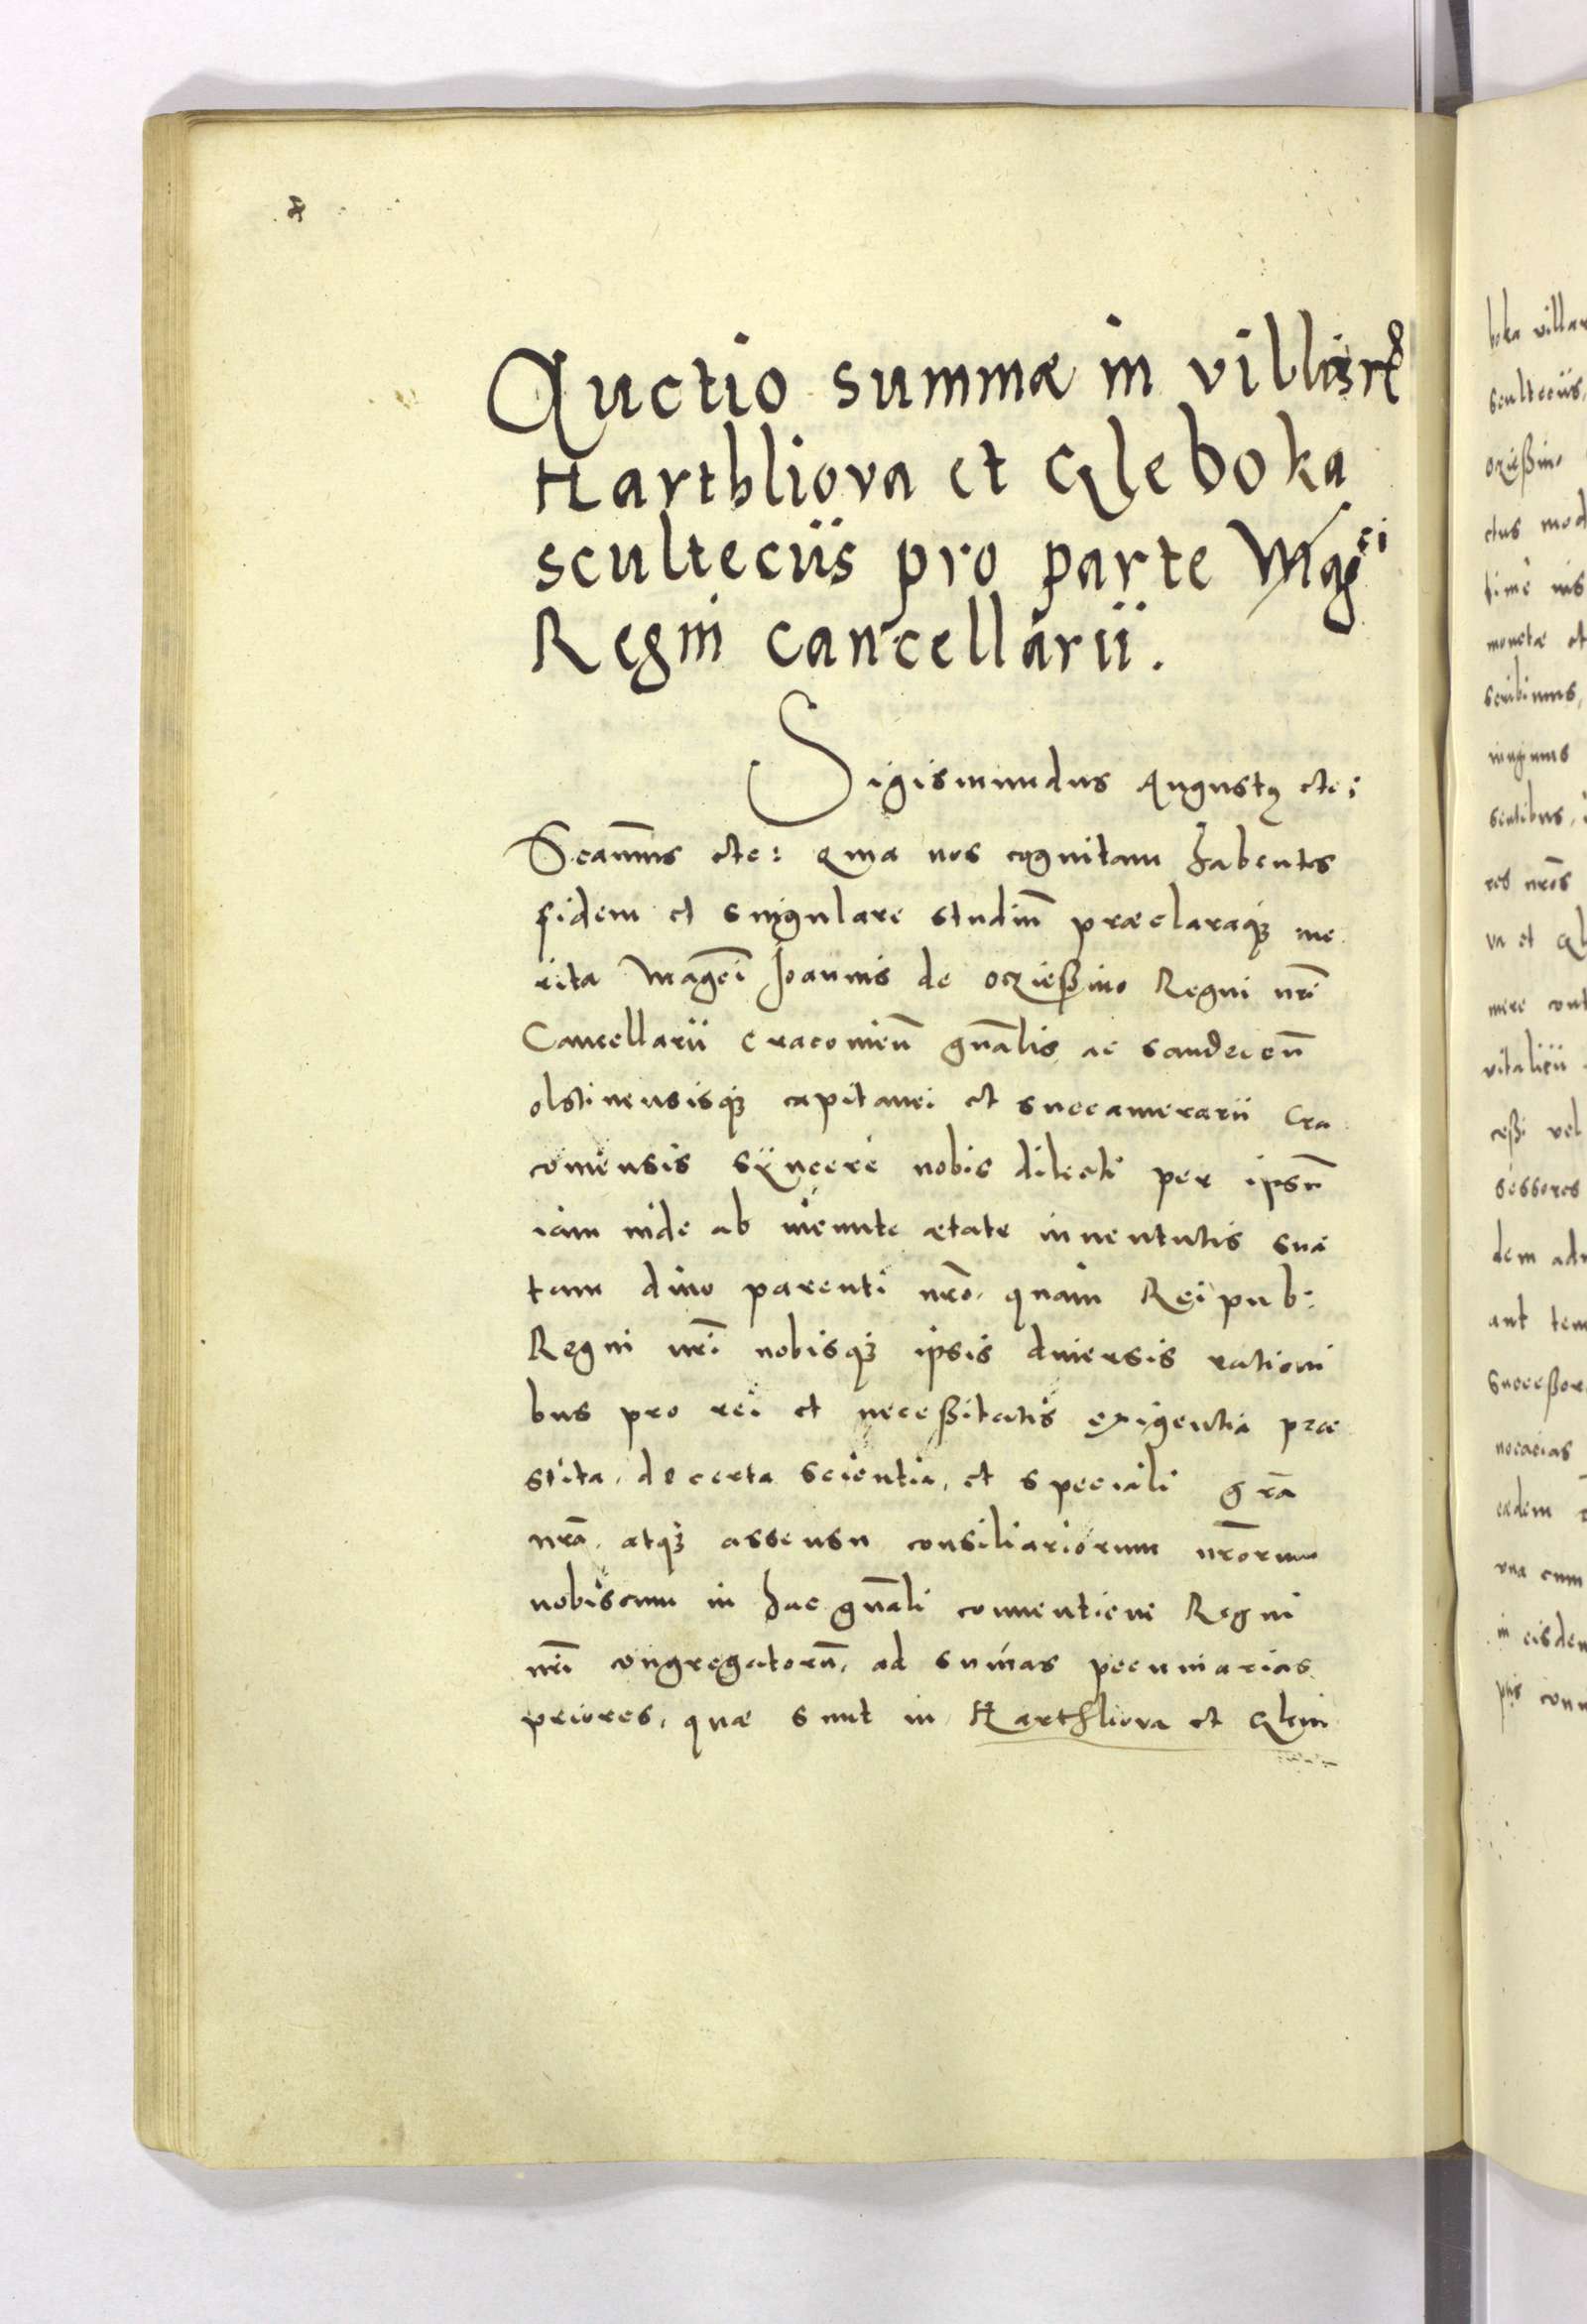 Auctio summæ in villis re
Harthliova et Gleboka
sculteciis pro parte Magci
Regni cancellarii.
Sigismundus Augustq etc:
Seamus etc: Quia nos cognitam habentes
fidem et singulare studiū præclaraq; me
rita Magci Joannis de Oczießino Regni nri
Cancellarii Cracovien gnalis ac Sandecen
olstinensisq; capitanei et succamerarii Cra
coviensis syncere nobis dilecti per ipsū
iam inde ab ineunte ætate iuventutis suæ
tam divo parenti nro, quam Reipub:
Regni nri nobisq; ipsis diversis rationi
bus pro rei et neceßitatis exigentia præ
stita, de certa scientia, et speciali gra
nra, atq; assensu consiliariorum nrorum
nobiscum in hac gnali conventione Regni
nri congregatorū, ad sumas pecuniarias
priores, quæ sunt in Harthliova et Glem
boka villar
sculteciis,
oczießino
ctus mod
monetæ et
scribimus,
sentibus,
res nros
va et Gl
mere cont
vitalicii
ceßi vel
sessores
dem adv
aut tem
succeßor
vocacias
eædem
una cum
in eisdem